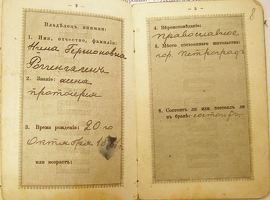 Владѣлецъ книжки:
1. Имя, отчество, фамилія:
Нина
2. Званіе: жена
протоіерея
3. Время рожденія: 20 го
Октября
или возрастъ:
4. Вѣроисповѣданіе:
православное
5. Мѣсто постояннаго жительства:
гор. Петроградъ
6. Состоитъ ли или состоялъ ли
въ бракѣ: состоитъ